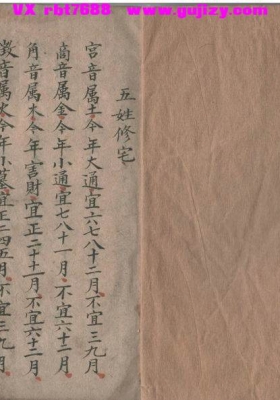 VX rbt7688 www.gujizy.com
五姓修宅
宫音属土今年大通宜六七八十二月不宜三九月
商音属金今年小通宜七八十一月不宜六十二月
角音属木今年害财宜正二十十一月不宜六十二月
徵音属火今年小墓宜正二四五月不宜三九月